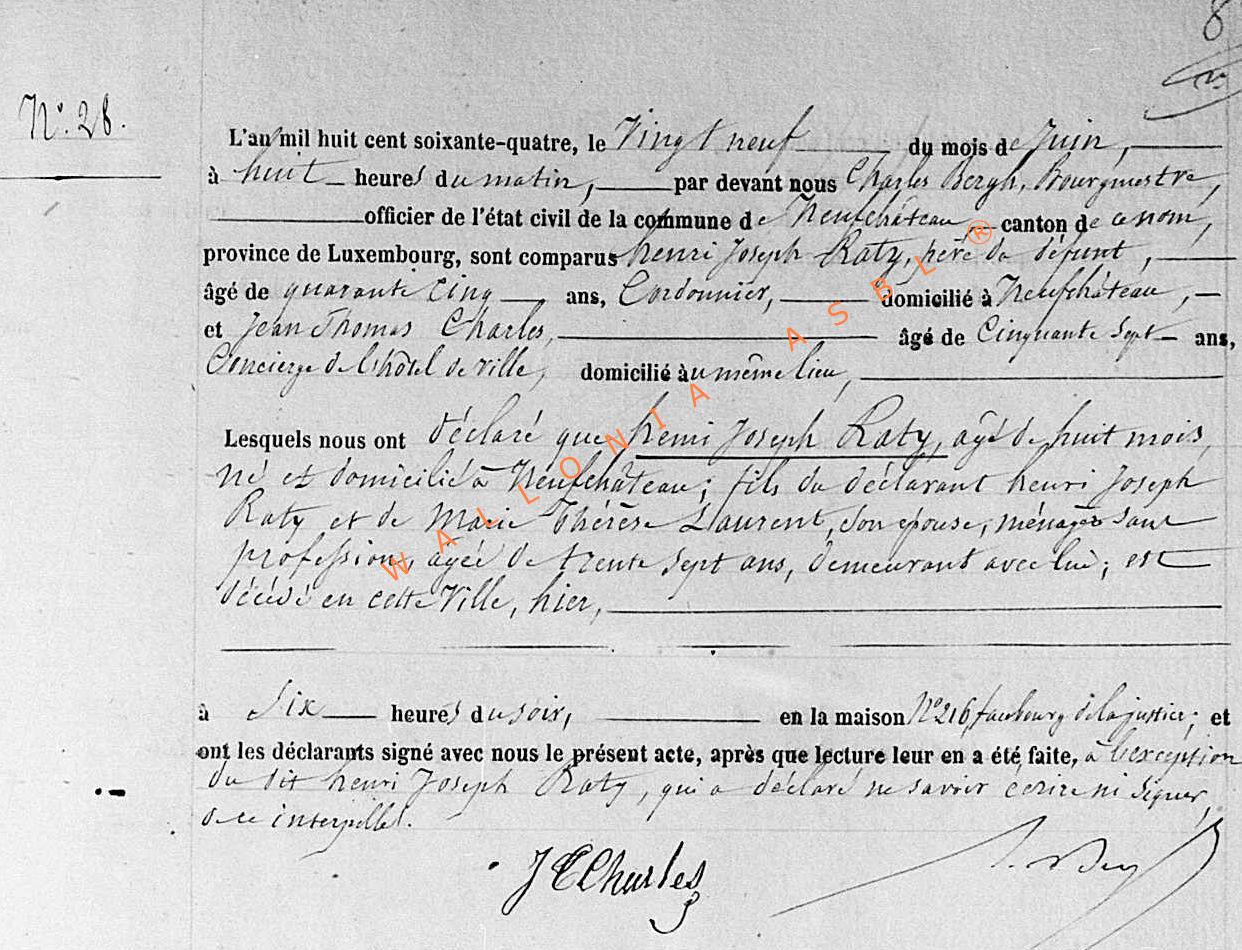 8
N°. 28.
L'an mil huit cent soixante-quatre, le Vingt neuf du mois de Juin,
à huit heures du matin, par devant nous Charles Bergh, Bourgmestre,
officier de l'état civil de la commune de Neufchâteau canton de ce nom,
province de Luxembourg, sont comparus henri Joseph Raty, père du défunt,
âgé de quarante cinq ans, Cordonnier, domicilié à Neufchâteau,
et Jean Thomas Charles, âgé de Cinquante Sept ans,
Concierge de l'hôtel de Ville, domicilié au même lieu,
Lesquels nous ont déclaré que henri Joseph Raty, âgé de huit mois,
né et domicilié à Neufchâteau; fils du déclarant henri Joseph
Raty et de Marie Thérèse Laurent, son épouse, ménagère sans
profession, agée de trente Sept ans, demeurant avec lui; est
décédé en cette Ville, hier,
à Six heures du soir, en la maison N° 216, faubourg de la justice; et
ont les déclarants signé avec nous le présent acte, après que lecture leur en a été faite, à l'exception
du dit henri Joseph Raty, qui a déclaré ne savoir écrire ni Signer,
de ce interpellé.
J T Charles
WALLONIA ASBL ®